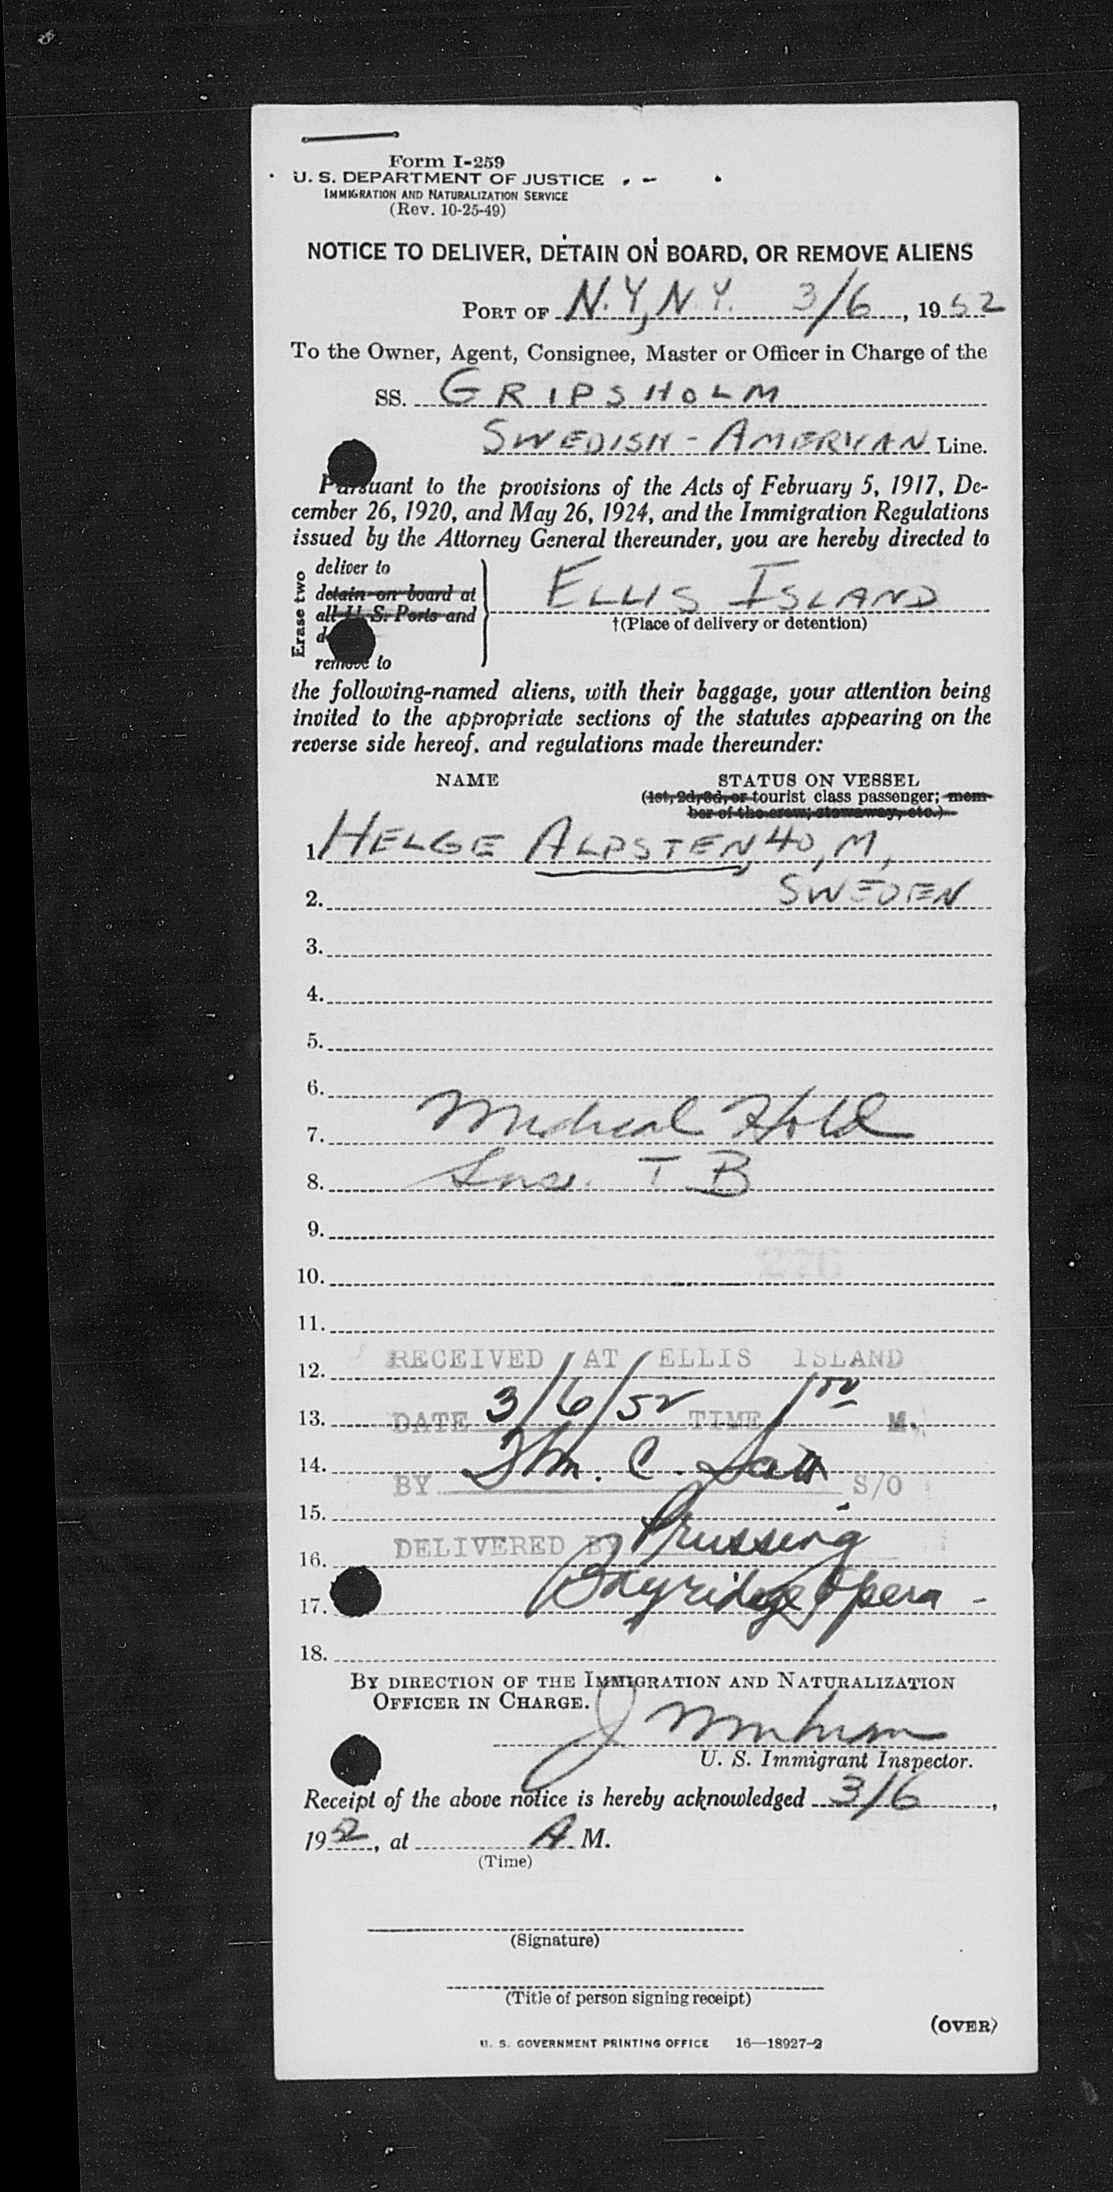 Form I-259
U. S. DEPARTMENT OF JUSTICE
IMMIGRATION AND NATURALIZATION SERVICE
(Rev. 10-25-49)
NOTICE TO DELIVER, DETAIN ON BOARD, OR REMOVE ALIENS
PORT OF N.Y., N.Y. 3/6, 1952
To the Owner, Agent, Consignee, Master or Officer in Charge of the
SS. GRIPSHOLM
SWEDISH-AMERICAN Line.
Pursuant to the provisions of the Acts of February 5, 1917, De-
cember 26, 1920, and May 26, 1924, and the Immigration Regulations
issued by the Attorney General thereunder, you are hereby directed to
Erase two
deliver to
detain on board at
all U. S. Ports and
remove to
ELLIS ISLAND
†(Place of delivery or detention)
the following-named aliens, with their baggage, your attention being
invited to the appropriate sections of the statutes appearing on the
reverse side hereof, and regulations made thereunder:
NAME STATUS ON VESSEL
(1st, 2d, 3d, or tourist class passenger; mem-
ber of the crew; stowaway, etc.)
1. HELGE ALPSTEN, 40, M,
2. SWEDEN
3.
4.
5.
6.
7. Medical Hold
8. Susp. T B
9.
10.
11.
12. RECEIVED AT ELLIS ISLAND
13. DATE 3/6/52 TIME 1 00 M.
14.
BY C. S/O
15.
16. DELIVERED BY Prussing
17. Bayridge Opera -
18.
BY DIRECTION OF THE IMMIGRATION AND NATURALIZATION
OFFICER IN CHARGE.
U. S. Immigrant Inspector.
Receipt of the above notice is hereby acknowledged 3/6,
1952, at A M.
(Time)
(Signature)
(Title of person signing receipt)
(OVER)
U. S. GOVERNMENT PRINTING OFFICE 16—18927-2